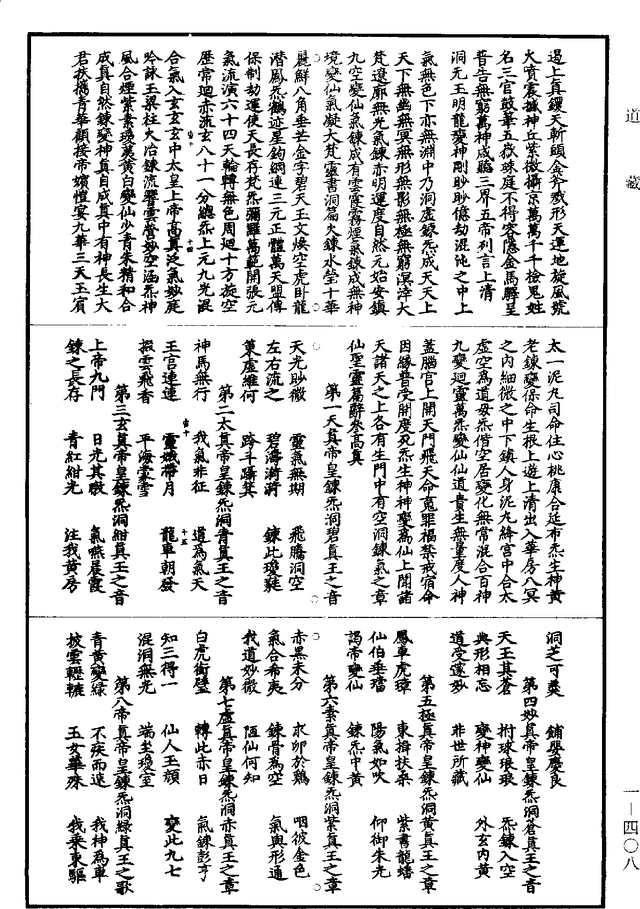 道藏
遏上真鑊天斬頭火斧戮形天運地旋風號
火噴震撼神丘紫微攝京萬萬千千檢鬼姓
名三官鼓筆五嶽殊庭不得容隱金馬驛呈
普告無窮萬神咸聽三界五帝列言上清
洞元玉明龍變神剛眇眇億劫混沌之中上
氣無色下亦無淵中乃洞虛鍊炁成天天上
天下無幽無冥無形無影無極無窮溟涬大
梵遼廓無光氣鍊赤明運度自然元始安鎮
九空變仙氣鍊成有雲霞霧煙氣鍊成無神
境變仙氣凝大梵靈書洞篇火鍊水瑩十華
麗鮮八角垂芒金字碧天王文煥空虎卧龍
潛鳳炁鶴迹星鈎網連三元正體萬天盟傳
保制劫運使天長存梵炁彌羅萬範開張元
氣流演六十四天輪轉無色周迴十方旋空
歷常迴赤流玄八十一分總炁上元九光混
合氣入玄玄玄中太皇上帝高真泛氣妙庭
吟詠玉梁柱火冶鍊流響雲營妙空涵炁神
風合煙紫素瓊英黄白變仙少青朱精和合
成真自然鍊變神真自成真中有神長生大
君扶携青華顧接帝嬪愷宴九華三天玉賓
太一泥丸司命住心桃康合延布炁生神黄
老鍊變保命生根上遊上清出入華房八冥
之内細微之中下鎮人身泥丸絳宮中合太
虛空為道母炁偕空居變化無常混合百神
九變迴靈萬炁變仙仙道貴生無量度人神
蓋腦宮上開天門飛天命寃罪福禁戒宿命
因緣普受開度死炁生神神變爲仙上聞諸
天諸天之上各有生門中有空洞鍊氣之章
仙聖靈篇辭參高真
第一天真帝皇鍊炁洞碧真王之音
天光眇微　靈氣無期　飛騰洞空
左右流之　碧濤漪漪　鍊此瓊蕤
菓虛維何　跨斗躡箕
第二太真帝皇鍊炁洞青真王之音
神馬無行　我氣非征　道爲氣天
王宫連連　靈娥帶月　龍車朝發
掇雲飛香　平海棠雪
第三玄真帝皇鍊炁洞紺真王之音
上帝九門　日光其暾　氣燕晨霞
鍊之長存　青紅紺光　注我黄房
洞芝可羹　鋪嬰慶良
第四妙真帝皇鍊炁洞蒼真王之音
天王其蒼　拊球琅琅　炁鍊入空
典形相忘　變神變仙　外玄内黄
道受邃妙　非世所藏
第五極真帝皇鍊炁洞黄真王之章
鳳車虎璋　東揖扶桒　紫書龍蟠
仙伯垂璫　陽氣如吹　仰御朱光
謁帝變仙　鍊炁中黄
第六素真帝皇鍊炁洞紫真王之章
赤黑未分　求卵於鷄　咽彼金色
氣合希夷　鍊骨爲空　氣與形通
我道妙微　陋仙何知
第七虛真帝皇鍊炁洞赤真王之章
白虎銜璧　轉此赤日　氣鍊彭亨
知三得一　仙人玉頯　變此九七
混洞無光　端坐瓊室
第八帝真帝皇鍊炁洞緑真王之歌
青黄變緑　不疾而速　我神爲車
披雲轣轆　玉女華殊　我乘東驅
一—四〇八